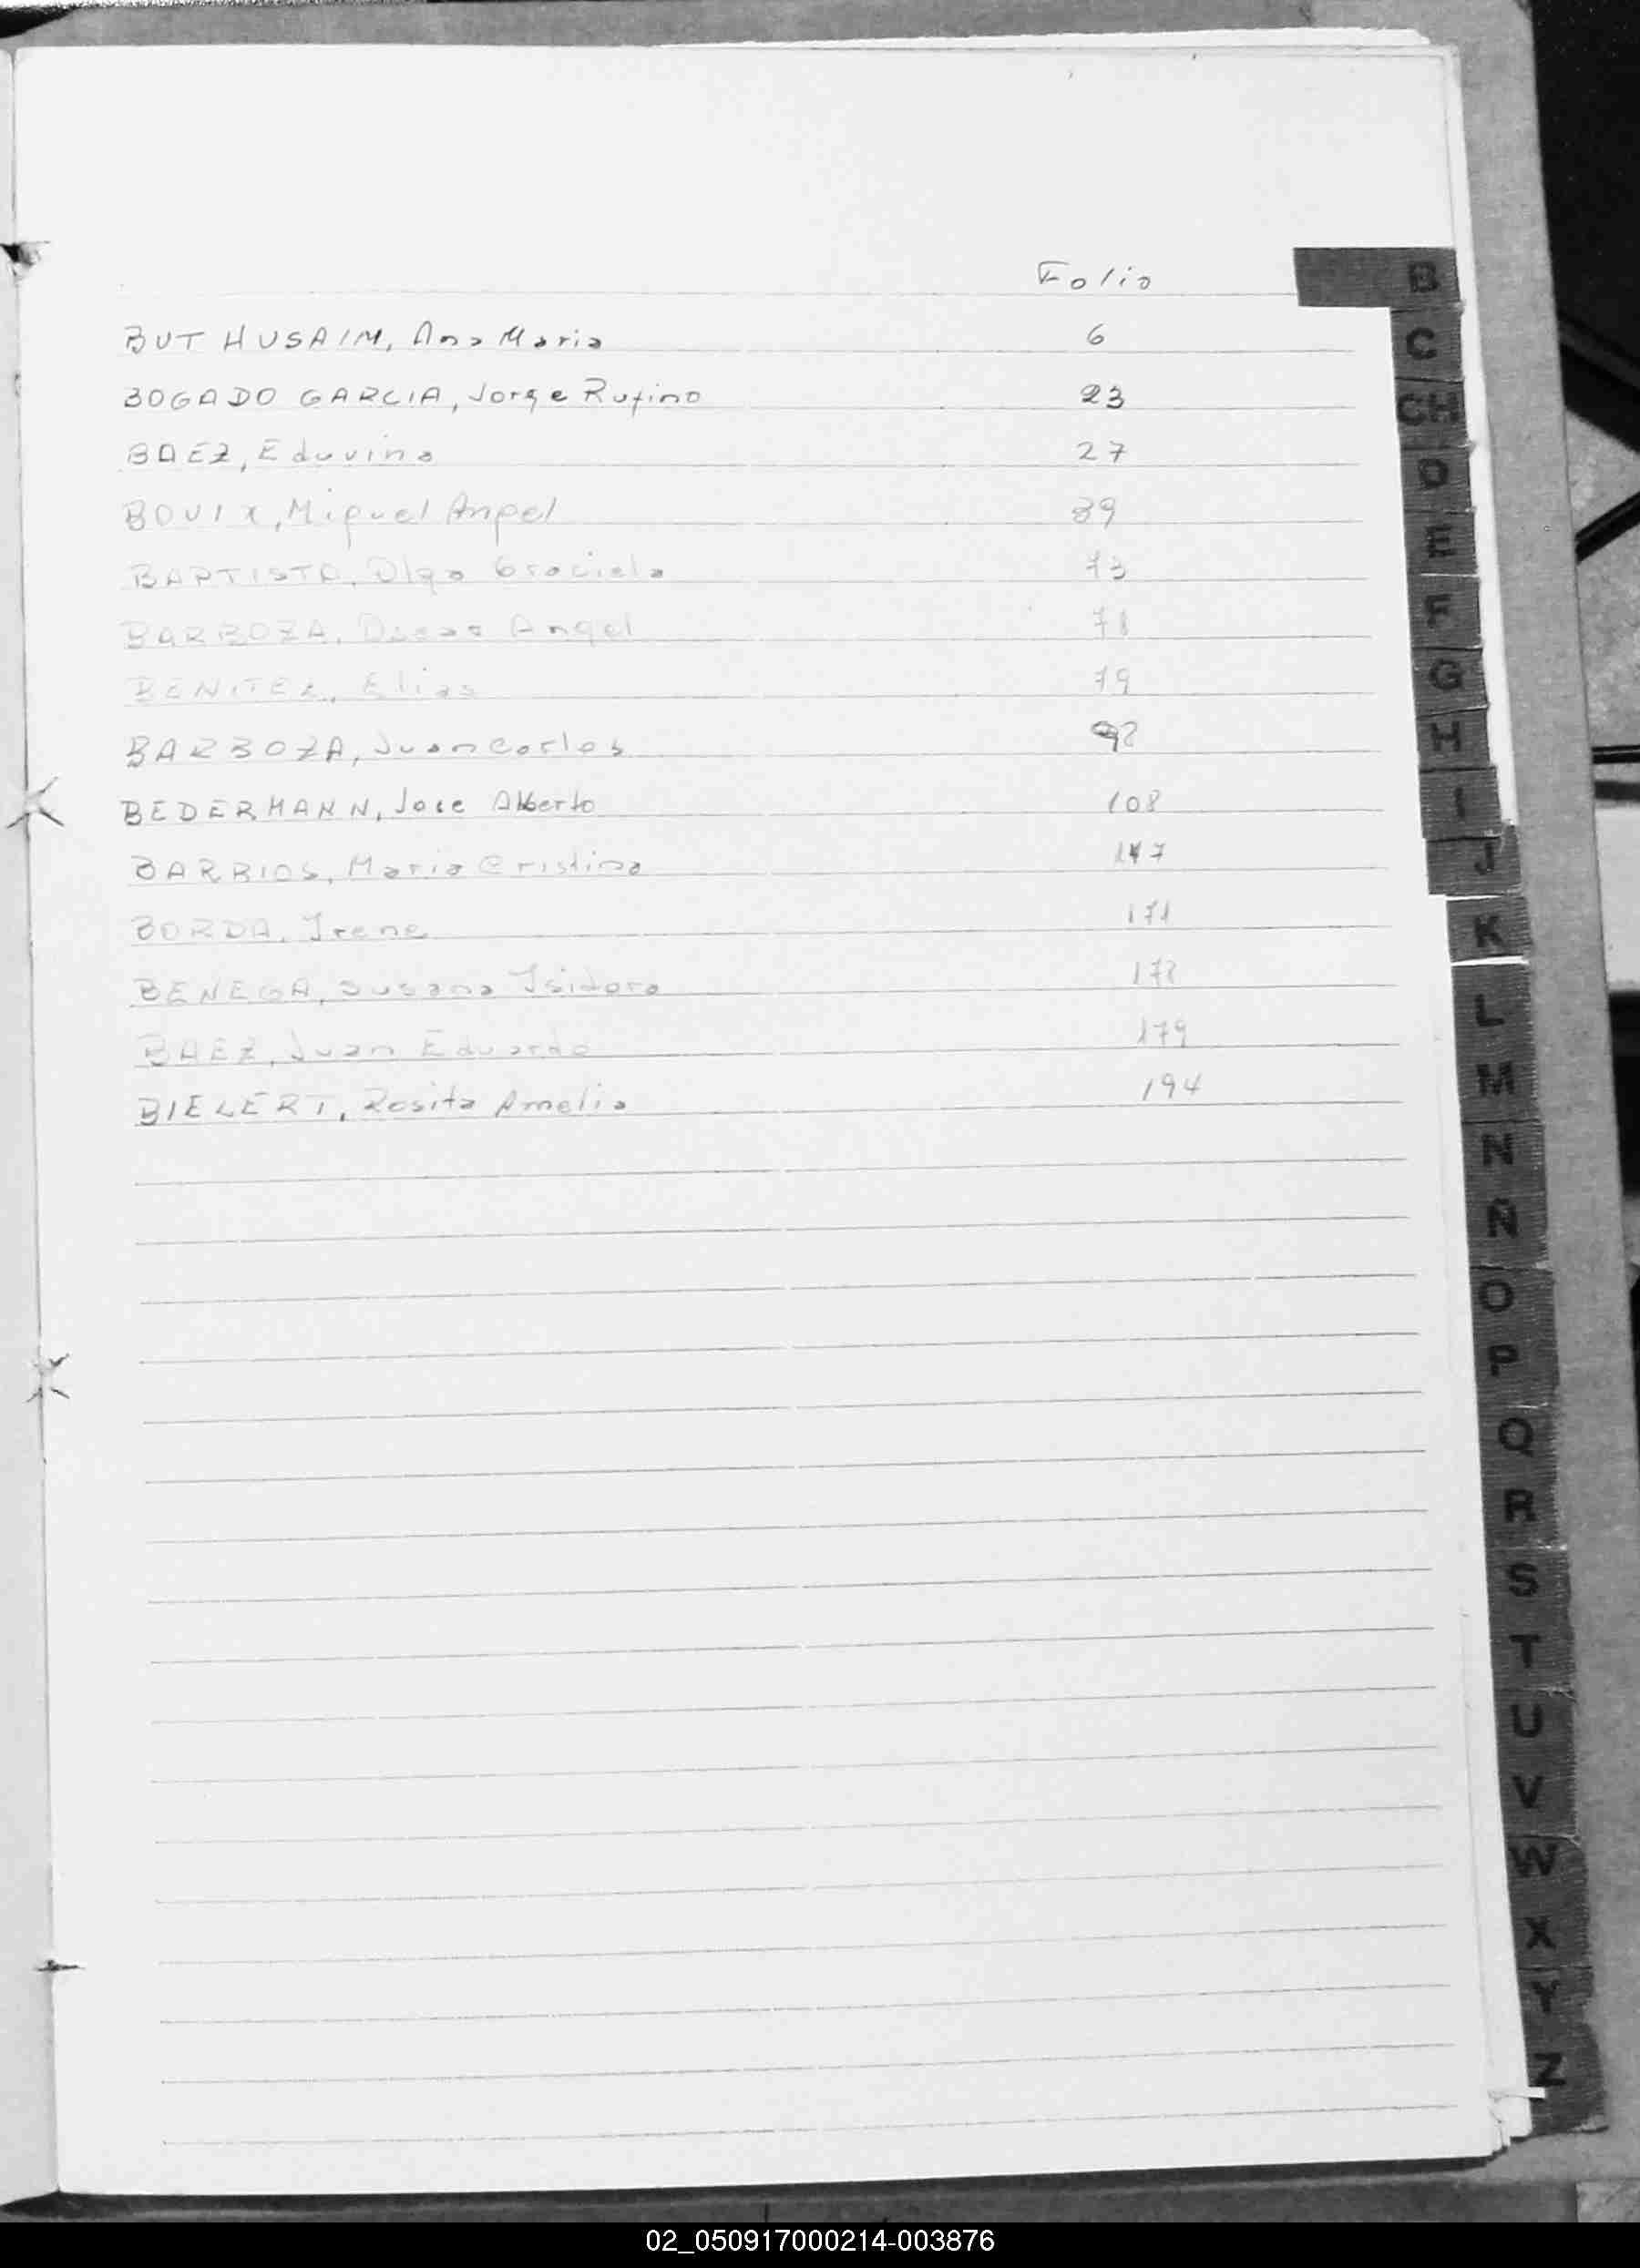 Folio
BUT HUSAIM, Ana Maria 6
BOGADO GARCIA, Jorge Rufino 23
BAEZ, Eduvina 27
BOUIX, Miguel Angel 39
BAPTISTA, Olga Graciela 73
BARBOZA, Oscar Angel 78
BENITEZ, Elias 79
BARBOZA, Juan Carlos 92
BEDERMANN, Jose Alberto 108
BARRIOS, Maria Cristina 147
BORDA, Irene 171
BENEGA, Susana Isidora 178
BAEZ, Juan Eduardo 179
BIELERT, Rosita Amelia 194
B
C
CH
D
E
F
G
H
I
J
K
L
M
N
Ñ
O
P
Q
R
S
T
U
V
W
X
Y
Z
02_050917000214-003876